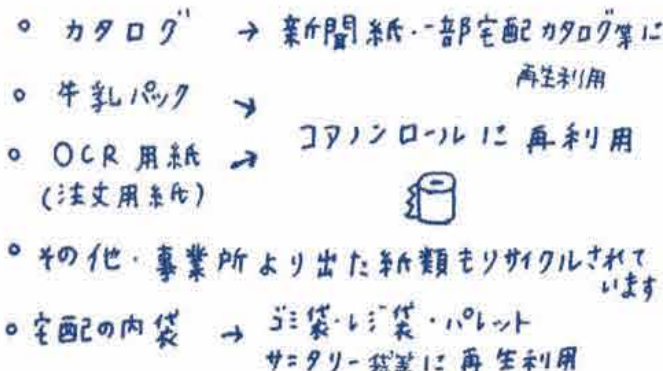 ○ カタログ → 新聞紙・一部宅配カタログ等に
再生利用
○ 牛乳パック →
○ OCR用紙 → コアノンロールに再利用
(注文用紙)
○ その他・事業所より出た紙類もリサイクルされて
います
○ 宅配の内袋 → ゴミ袋・レジ袋・パレット
サニタリー袋等に再生利用